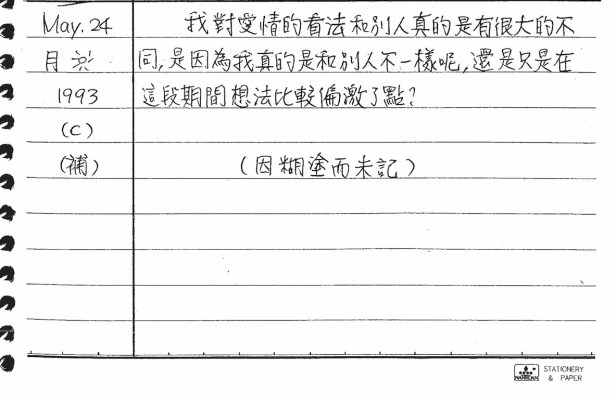 May. 24 我對愛情的看法和別人真的是有很大的不
月 同,是因為我真的是和別人不一樣呢,還是只是在
1993 這段期間想法比較偏激了點?
(C)
(補) (因糊塗而未記)
STATIONERY
& PAPER